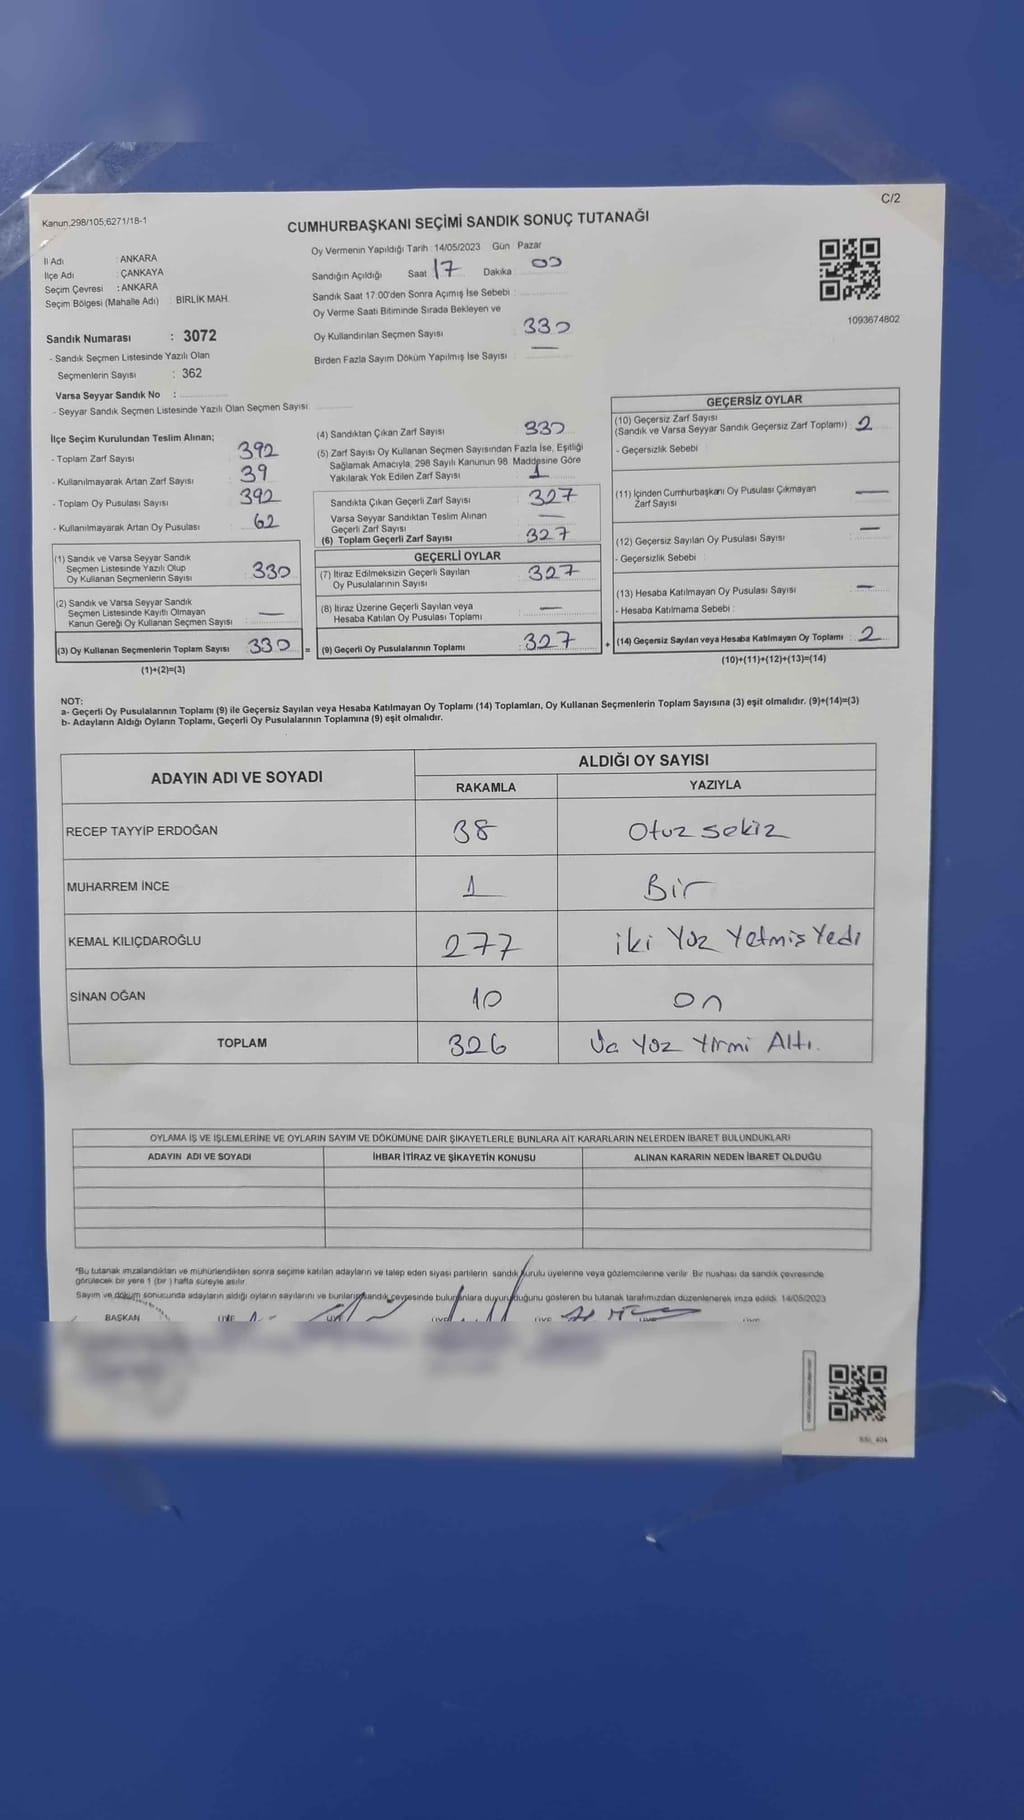 C/2
Kanun,298/105;6271/18-1
CUMHURBAŞKANI SEÇİMİ SANDIK SONUÇ TUTANAĞI
İl Adı : ANKARA
İlçe Adı : ÇANKAYA
Seçim Çevresi : ANKARA
Seçim Bölgesi (Mahalle Adı) : BİRLİK MAH.
Sandık Numarası : 3072
- Sandık Seçmen Listesinde Yazılı Olan
Seçmenlerin Sayısı : 362
Varsa Seyyar Sandık No :
- Seyyar Sandık Seçmen Listesinde Yazılı Olan Seçmen Sayısı:
Oy Vermenin Yapıldığı Tarih : 14/05/2023 Gün : Pazar
Sandığın Açıldığı Saat 17 Dakika 00
Sandık Saat 17:00'den Sonra Açımış İse Sebebi :
Oy Verme Saati Bitiminde Sırada Bekleyen ve
Oy Kullandırılan Seçmen Sayısı : 330
Birden Fazla Sayım Döküm Yapılmış İse Sayısı : —
1093674802
İlçe Seçim Kurulundan Teslim Alınan;
- Toplam Zarf Sayısı 392
- Kullanılmayarak Artan Zarf Sayısı 39
- Toplam Oy Pusulası Sayısı 392
- Kullanılmayarak Artan Oy Pusulası 62
(1) Sandık ve Varsa Seyyar Sandık
Seçmen Listesinde Yazılı Olup
Oy Kullanan Seçmenlerin Sayısı 330
(2) Sandık ve Varsa Seyyar Sandık
Seçmen Listesinde Kayıtlı Olmayan
Kanun Gereği Oy Kullanan Seçmen Sayısı —
(3) Oy Kullanan Seçmenlerin Toplam Sayısı 330 =
(1)+(2)=(3)
(4) Sandıktan Çıkan Zarf Sayısı 330
(5) Zarf Sayısı Oy Kullanan Seçmen Sayısından Fazla İse, Eşitliği
Sağlamak Amacıyla, 298 Sayılı Kanunun 98. Maddesine Göre
Yakılarak Yok Edilen Zarf Sayısı 1
Sandıkta Çıkan Geçerli Zarf Sayısı 327
Varsa Seyyar Sandıktan Teslim Alınan
Geçerli Zarf Sayısı —
(6) Toplam Geçerli Zarf Sayısı 327
GEÇERLİ OYLAR
(7) İtiraz Edilmeksizin Geçerli Sayılan
Oy Pusulalarının Sayısı 327
(8) İtiraz Üzerine Geçerli Sayılan veya
Hesaba Katılan Oy Pusulası Toplamı —
(9) Geçerli Oy Pusulalarının Toplamı 327 +
GEÇERSİZ OYLAR
(10) Geçersiz Zarf Sayısı
(Sandık ve Varsa Seyyar Sandık Geçersiz Zarf Toplamı) : 2
- Geçersizlik Sebebi :
(11) İçinden Cumhurbaşkanı Oy Pusulası Çıkmayan
Zarf Sayısı —
(12) Geçersiz Sayılan Oy Pusulası Sayısı —
- Geçersizlik Sebebi :
(13) Hesaba Katılmayan Oy Pusulası Sayısı —
- Hesaba Katılmama Sebebi :
(14) Geçersiz Sayılan veya Hesaba Katılmayan Oy Toplamı : 2
(10)+(11)+(12)+(13)=(14)
NOT:
a- Geçerli Oy Pusulalarının Toplamı (9) ile Geçersiz Sayılan veya Hesaba Katılmayan Oy Toplamı (14) Toplamları, Oy Kullanan Seçmenlerin Toplam Sayısına (3) eşit olmalıdır. (9)+(14)=(3)
b- Adayların Aldığı Oyların Toplamı, Geçerli Oy Pusulalarının Toplamına (9) eşit olmalıdır.
ADAYIN ADI VE SOYADI
ALDIĞI OY SAYISI
RAKAMLA YAZIYLA
RECEP TAYYİP ERDOĞAN 38 Otuz sekiz
MUHARREM İNCE 1 Bir
KEMAL KILIÇDAROĞLU 277 iki Yüz Yetmiş Yedi
SİNAN OĞAN 10 on
TOPLAM 326 Üç Yüz Yirmi Altı.
OYLAMA İŞ VE İŞLEMLERİNE VE OYLARIN SAYIM VE DÖKÜMÜNE DAİR ŞİKAYETLERLE BUNLARA AİT KARARLARIN NELERDEN İBARET BULUNDUKLARI
ADAYIN ADI VE SOYADI İHBAR İTİRAZ VE ŞİKAYETİN KONUSU ALINAN KARARIN NEDEN İBARET OLDUĞU
*Bu tutanak imzalandıktan ve mühürlendikten sonra seçime katılan adayların ve talep eden siyasi partilerin sandık kurulu üyelerine veya gözlemcilerine verilir. Bir nüshası da sandık çevresinde
görülecek bir yere 1 (bir) hafta süreyle asılır.
Sayım ve döküm sonucunda adayların aldığı oyların sayılarını ve bunların sandık çevresinde bulunanlara duyurulduğunu gösteren bu tutanak tarafımızdan düzenlenerek imza edildi. 14/05/2023
BAŞKAN